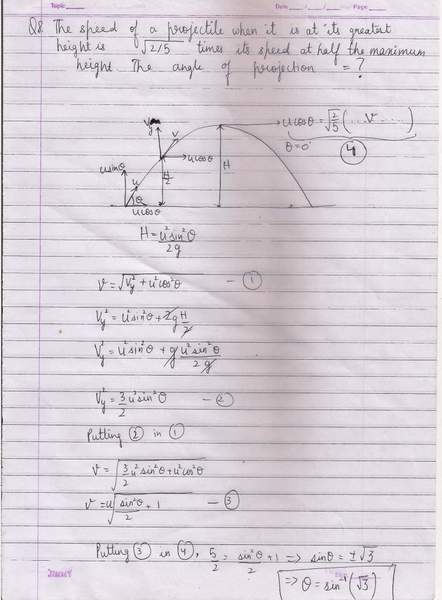 Topic
Date
Q8 The speed of a projectile when it is at its greatest
height is √2/5 times its speed at half the maximum
height. The angle of projection = ?
Vy
v
ucosθ = √2/5 (...v...)
θ=0°
④
usinθ
u
θ
ucosθ
H/2
ucosθ
H
H = u²sin²θ/2g
v = √Vy² + u²cos²θ — ①
Vy² = u²sin²θ + 2g H/2
Vy² = u²sin²θ + g u²sin²θ/2g
Vy² = 3/2 u²sin²θ — ②
Putting ② in ①
v = √3/2 u²sin²θ + u²cos²θ
v = u√sin²θ/2 + 1 — ③
Putting ③ in ④, 5/2 = sin²θ/2 + 1 => sinθ = ±√3
=> θ = sin⁻¹(√3)